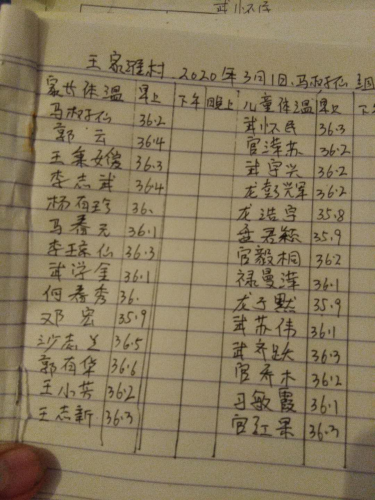 武怀序
王家强村 2020年3月1日 马树仙 3月
家长体温 早上 下午 晚上 儿童体温 早上 下
马树仙 36.2 武怀民 36.3
郭云 36.4 官泽苏 36.2
王集女傻 36.3 武宇兴 36.2
李志武 36.4 龙彭兴军 36.2
杨有珍 36. 龙浩宇 35.8
马春元 36.1 孟君颖 35.9
李琼仙 36.3 官毅桐 36.2
武学金 36.1 禄曼泽 36.1
何春秀 36. 龙子默 35.9
邓宏 35.9 武苏伟 36.1
沙志兰 36.5 武齐跃 36.3
郭有华 36.6 官乔木 36.2
王小芳 36.2 马敏霞 36.1
王志新 36.3 官红果 36.3